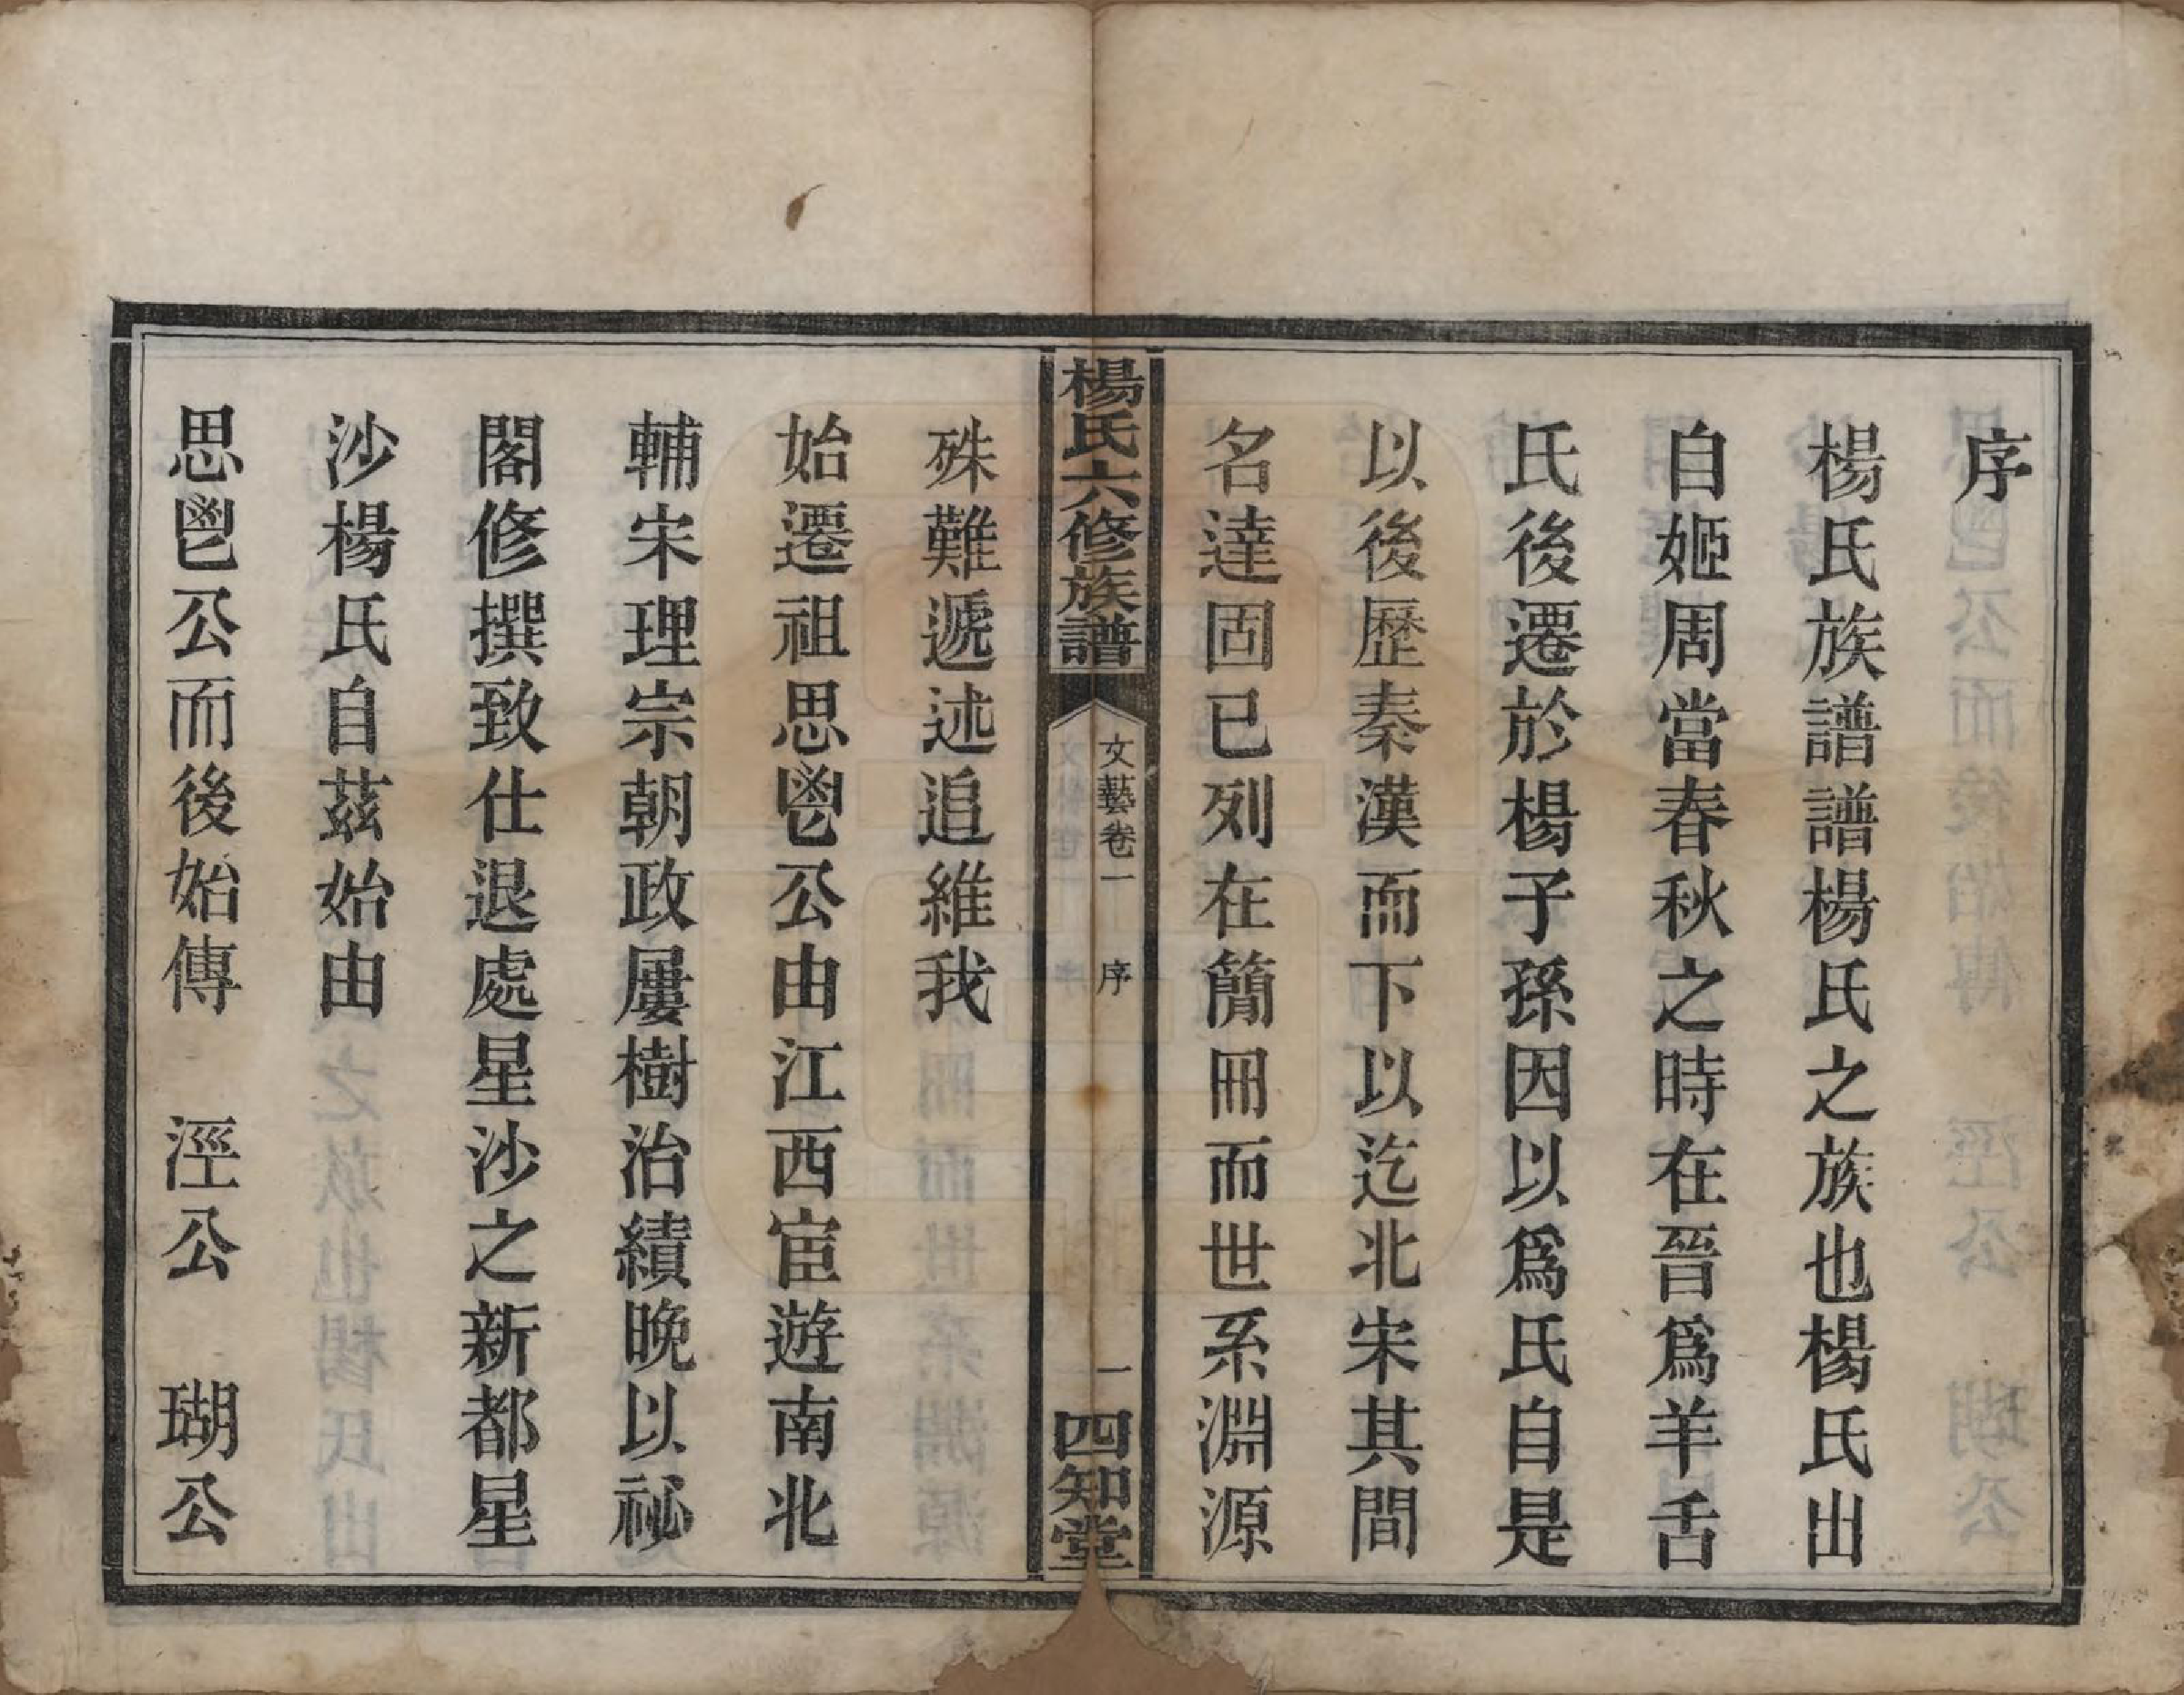 序
楊氏族譜譜楊氏之族也楊氏出
自姬周當春秋之時在晉爲羊舌
氏後遷於楊子孫因以爲氏自是
以後歷秦漢而下以迄北宋其間
名達固已列在簡冊而世系淵源
楊氏六修族譜
文藝卷一 序
一
四知堂
殊難遞述追維我
始遷祖思鬯公由江西宦遊南北
輔宋理宗朝政屢樹治績晚以祕
閣修撰致仕退處星沙之新都星
沙楊氏自茲始由
思鬯公而後始傳 涇公 瑚公